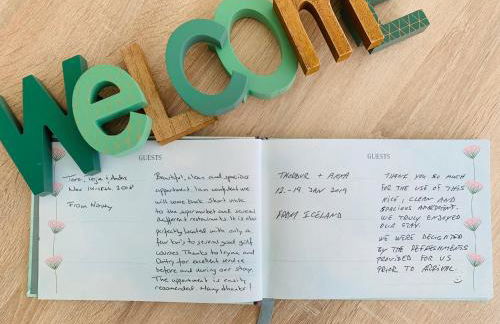 WeLCOMe
GUESTS
Nov
2018
From Norway
Beautiful, clean and spacious
appartment. I am confident we
will come back. Short wake
to the supermarket and several
different restaurants. It is also
perfectly located with only a
few km's to several good golf
courses. Thanks to Iryna and
for excellent service
before and during our stay.
The appartment is easily
recomended. Many thanks!
GUESTS
+
12.-19. JAN 2019
FROM ICELAND
THANK YOU SO MUCH
FOR THE USE OF THIS
NICE, CLEAN AND
SPACIOUS APARTMENT.
WE TRULY ENJOYED
OUR STAY.
WE WERE DELIGHTED
BY THE REFRESHMENTS
PROVIDED FOR US
PRIOR TO ARRIVAL.